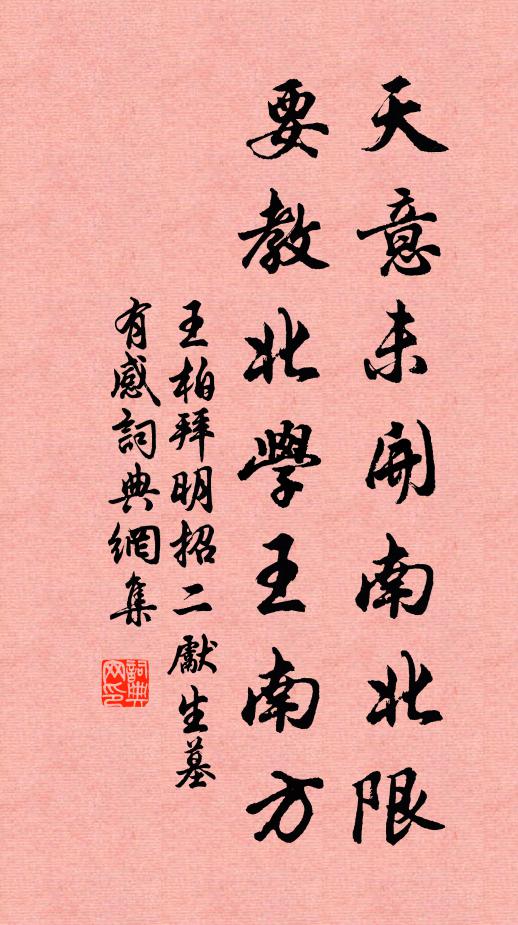 天意未開南北限
要教北學王南方
王柏拜明招二獻生墓
有感詞典網集
詞典网印